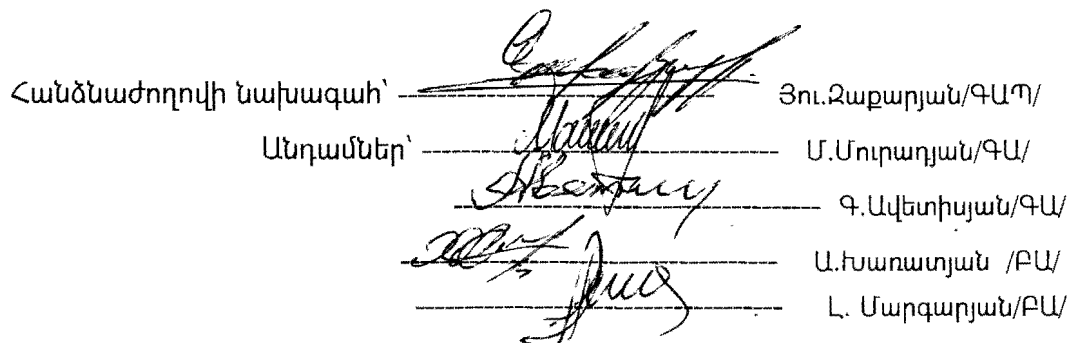 Հանձնաժողովի նախագահ՝ Յու.Զաքարյան/ԳԱՊ/
Անդամներ՝ Մ.Մուրադյան/ԳԱ/
Գ.Ավետիսյան/ԳԱ/
Ա.Խառատյան /ԲԱ/
Լ. Մարգարյան/ԲԱ/